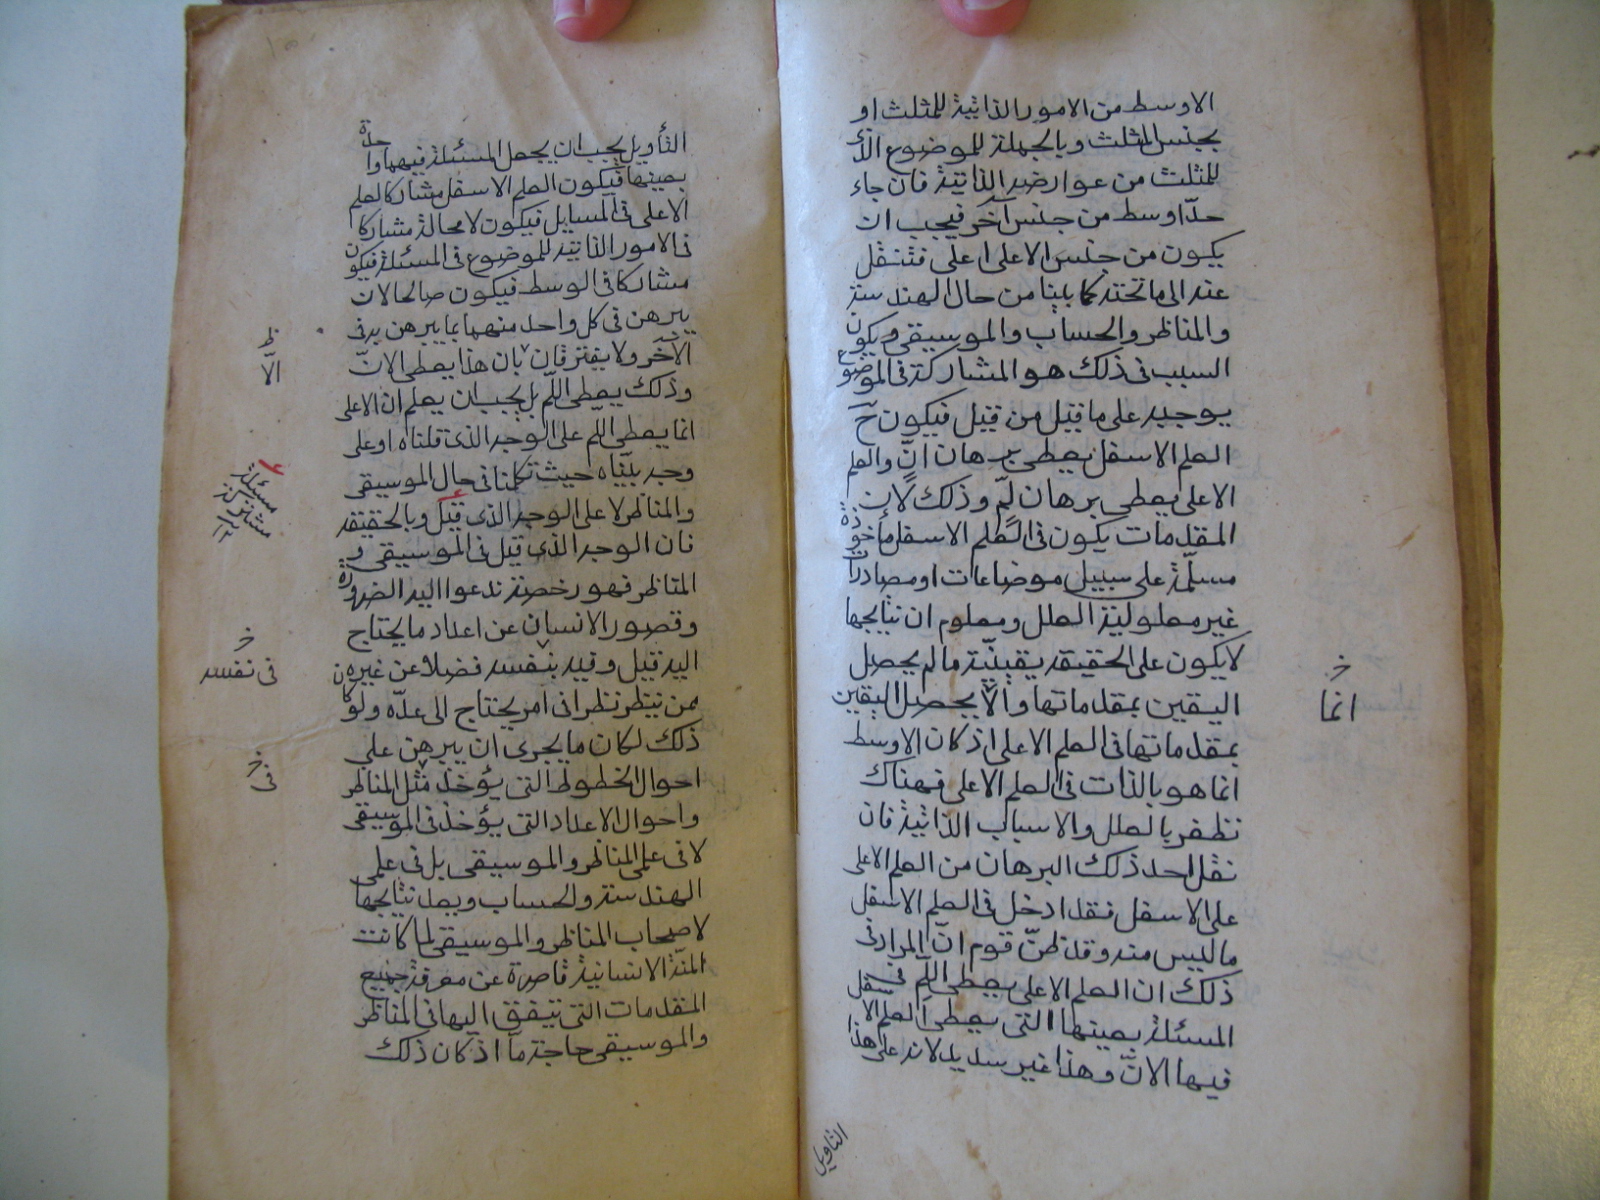 الاوسط من الامور الذاتية للمثلث او
بجنس المثلث وبالجملة للموضوع الذى
للمثلث من عوارضه الذاتية فان جاء
حدّا وسط من جنس آخر فيجب ان
يكون من جنس الاعلى اعلى فتنقل
عنه الى ما تحته كما بينا من حال الهندسة
والمناظر والحساب والموسيقى ويكون
السبب فى ذلك هو المشاركة فى الموضوع
بوجبه على ما قيل من قبل فيكون ح
العلم الاسفل يعطى برهان انّ والعلم
الاعلى يعطى برهان لمّ وذلك لان
المقدمات يكون فى العلم الاسفل مأخوذة
مسلّمة على سبيل موضاعات او مصادرات
غير معلولية العلل ومعلوم ان نتايجها
لا يكون على الحقيقة يقينيّة ما لم يحصل
اليقين بمقدماتها والّا يحصل اليقين
بمقدماتها فى العلم الاعلى اذ كان الاوسط
انما هو بالذات فى العلم الاعلى فهناك
نظفر بالعلل والاسباب الذاتية فان
نقل احد ذلك البرهان من العلم الاعلى
على الاسفل فقد ادخل فى العلم الاسفل
ما ليس منه وقد ظنّ قوم انّ المراد فى
ذلك ان العلم الاعلى يعطى اللم فى
المسئلة بعينها التى يعطى العلم الاسفل
فيها الانّ وهذا غير سديد لانه على هذا
التاويل
خ
انما
التأويل يجب ان يجعل المسئلة فيهما واحدة
بعينها فيكون العلم الاسفل مشاركا لعلم
الاعلى فى المسايل فيكون لا محالة مشاركا
فى الامور الذاتية للموضوع فى المسئلة فيكون
مشاركا فى الوسط فيكون صالحا لان
يبرهن فى كل واحد منهما بما يبرهن به فى
الآخر ولا يفترقان بان هذا يعطى الانّ
وذلك يعطى اللّم بل يجب ان يعلم ان الاعلى
انما يعطى اللّم على الوجه الذى قلناه او على
وجه بيّنّاه حيث تكلمنا فى حال الموسيقى
والمناظر لا على الوجه الذى قيل وبالحقيقة
فان الوجه الذى قيل فى الموسيقى و
المناظر فهو رخصة ندعوا اليه الضرورة
وقصور الانسان عن اعداد ما يحتاج
اليه قبل وقيه بنفسه فضلا عن غيره
ممن ينظر نظرا فى امر يحتاج الى عدّه ولو كان
ذلك لكان ما يجرى ان يبرهن على
احوال الخطوط التى يؤخذ مثل المناظر
واحوال الاعداد التى يؤخذ فى الموسيقى
لا فى علمى المناظر والموسيقى بل فى علمى
الهندسة والحساب ويعد نتايجها
لاصحاب المناظر والموسيقى لما كانت
المنّة الانسانية قاصرة عن معرفة جميع
المقدمات التى تتفق اليها فى المناظر
والموسيقى حاجة مّا اذ كان ذلك
ظ
الّا
مسئلة
مشتركة
خ
فى نفسه
خ
فى